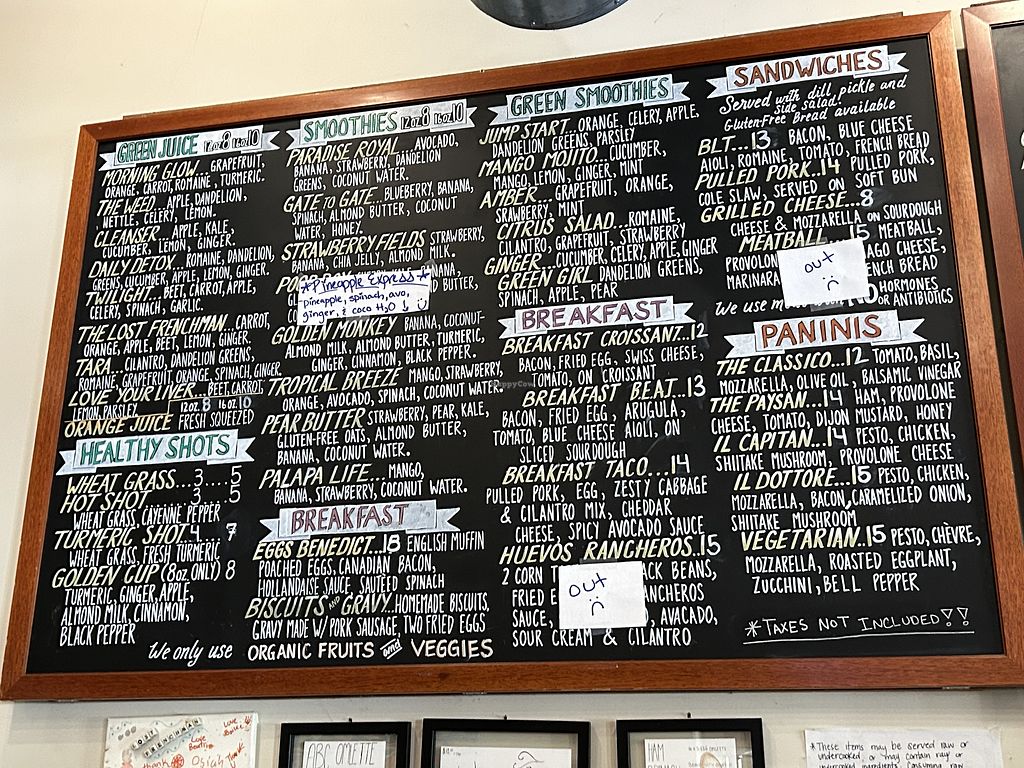 GREEN JUICE 12oz 8 16oz 10
MORNING GLOW... GRAPEFRUIT,
ORANGE, CARROT, ROMAINE, TURMERIC.
THE WEED... APPLE, DANDELION,
NETTLE, CELERY, LEMON.
CLEANSER... APPLE, KALE,
CUCUMBER, LEMON, GINGER.
DAILY DETOX... ROMAINE, DANDELION,
GREENS, CUCUMBER, APPLE, LEMON, GINGER.
TWILIGHT... BEET, CARROT, APPLE,
CELERY, SPINACH, GARLIC.
THE LOST FRENCHMAN... CARROT,
ORANGE, APPLE, BEET, LEMON, GINGER.
TARA... CILANTRO, DANDELION GREENS,
ROMAINE, GRAPEFRUIT, ORANGE, SPINACH, GINGER
LOVE YOUR LIVER... BEET, CARROT,
LEMON, PARSLEY
12oz. 8 16oz. 10
ORANGE JUICE FRESH SQUEEZED
HEALTHY SHOTS
WHEAT GRASS...3....5
HOT SHOT 3....5
WHEAT GRASS, CAYENNE PEPPER
TURMERIC SHOT 4... 7
WHEAT GRASS, FRESH TURMERIC
GOLDEN CUP (8oz. ONLY) 8
TURMERIC, GINGER, APPLE,
ALMOND MILK, CINNAMON,
BLACK PEPPER
SMOOTHIES 12oz 8 16oz 10
PARADISE ROYAL... AVOCADO,
BANANA, STRAWBERRY, DANDELION
GREENS, COCONUT WATER.
GATE to GATE... BLUEBERRY, BANANA,
SPINACH, ALMOND BUTTER, COCONUT
WATER, HONEY.
STRAWBERRY FIELDS STRAWBERRY,
BANANA, CHIA JELLY, ALMOND MILK.
BANANA,
*Pineapple Express*
pineapple, spinach, avo,
ginger, & coco H2O
BUTTER
GOLDEN MONKEY BANANA, COCONUT-
ALMOND MILK, ALMOND BUTTER, TURMERIC,
GINGER, CINNAMON, BLACK PEPPER.
TROPICAL BREEZE MANGO, STRAWBERRY,
ORANGE, AVOCADO, SPINACH, COCONUT WATER.
PEAR BUTTER STRAWBERRY, PEAR, KALE,
GLUTEN-FREE OATS, ALMOND BUTTER,
BANANA, COCONUT WATER.
PALAPA LIFE... MANGO,
BANANA, STRAWBERRY, COCONUT WATER.
BREAKFAST
EGGS BENEDICT...18 ENGLISH MUFFIN
POACHED EGGS, CANADIAN BACON,
HOLLANDAISE SAUCE, SAUTÉED SPINACH
BISCUITS AND GRAVY... HOMEMADE BISCUITS,
GRAVY MADE W/ PORK SAUSAGE TWO FRIED EGGS
We only use ORGANIC FRUITS and VEGGIES
GREEN SMOOTHIES
JUMP START... ORANGE, CELERY, APPLE,
DANDELION GREENS, PARSLEY
MANGO MOJITO... CUCUMBER,
MANGO, LEMON, GINGER, MINT
AMBER... GRAPEFRUIT, ORANGE,
SRAWBERRY, MINT
CITRUS SALAD... ROMAINE,
CILANTRO, GRAPEFRUIT, STRAWBERRY
GINGER... CUCUMBER, CELERY, APPLE, GINGER
GREEN GIRL DANDELION GREENS,
SPINACH, APPLE, PEAR
BREAKFAST
BREAKFAST CROISSANT...12
BACON, FRIED EGG, SWISS CHEESE,
TOMATO, ON CROISSANT
BREAKFAST BEAT...13
BACON, FRIED EGG, ARUGULA,
TOMATO, BLUE CHEESE AIOLI, ON
SLICED SOURDOUGH
BREAKFAST TACO...14
PULLED PORK, EGG, ZESTY CABBAGE
& CILANTRO MIX, CHEDDAR
CHEESE, SPICY AVOCADO SAUCE
HUEVOS RANCHEROS...15
2 CORN BEANS,
FRIED RANCHEROS
out
SAUCE, AVACADO,
SOUR CREAM & CILANTRO
SANDWICHES
Served with dill pickle and
side salad!
Gluten-Free Bread available
BLT...13 BACON, BLUE CHEESE
AIOLI, ROMAINE, TOMATO, FRENCH BREAD
PULLED PORK...14 PULLED PORK,
COLE SLAW, SERVED ON SOFT BUN
GRILLED CHEESE...8
CHEESE & MOZZARELLA ON SOURDOUGH
MEATBALL...15 MEATBALL,
CHEESE,
MARINARA BREAD
out
We use NO HORMONES
OR ANTIBIOTICS
PANINIS
THE CLASSICO...12 TOMATO, BASIL,
MOZZARELLA, OLIVE OIL, BALSAMIC VINEGAR
THE PAYSAN...14 HAM, PROVOLONE
CHEESE, TOMATO, DIJON MUSTARD, HONEY
IL CAPITAN...14 PESTO, CHICKEN,
SHIITAKE MUSHROOM, PROVOLONE CHEESE
IL DOTTORE...15 PESTO, CHICKEN,
MOZZARELLA, BACON, CARAMELIZED ONION,
SHIITAKE MUSHROOM
VEGETARIAN...15 PESTO, CHÈVRE,
MOZZARELLA, ROASTED EGGPLANT,
ZUCCHINI, BELL PEPPER
*TAXES NOT INCLUDED!!
LOST
FRENCHMAN
ABC OMLETTE
HAM
*These items may be served raw or
undercooked, or may contain raw or
undercooked ingredients. Consuming raw